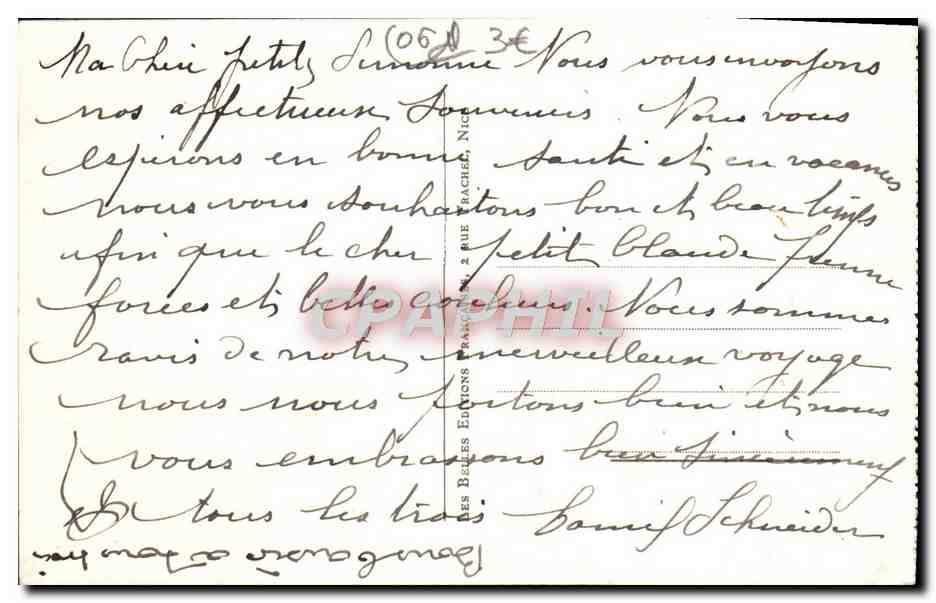 (06) 3€
Ma Chère petite Simonne Nous vous envoyons
nos affectueux Souvenirs. Nous vous
espérons en bonne santé et en vacances
nous vous souhaitons bon et beau temps
afin que le cher petit Claude prenne
forces et belles couleurs. Nous sommes
ravis de notre merveilleux voyage
nous nous portons bien et nous
vous embrassons bien sincèrement
tous les trois Camil Schneider
Bons baisers à tous trois
LES BELLES EDITIONS FRANÇAISES, 2 RUE TRACHEL, NICE
CPAPHIL